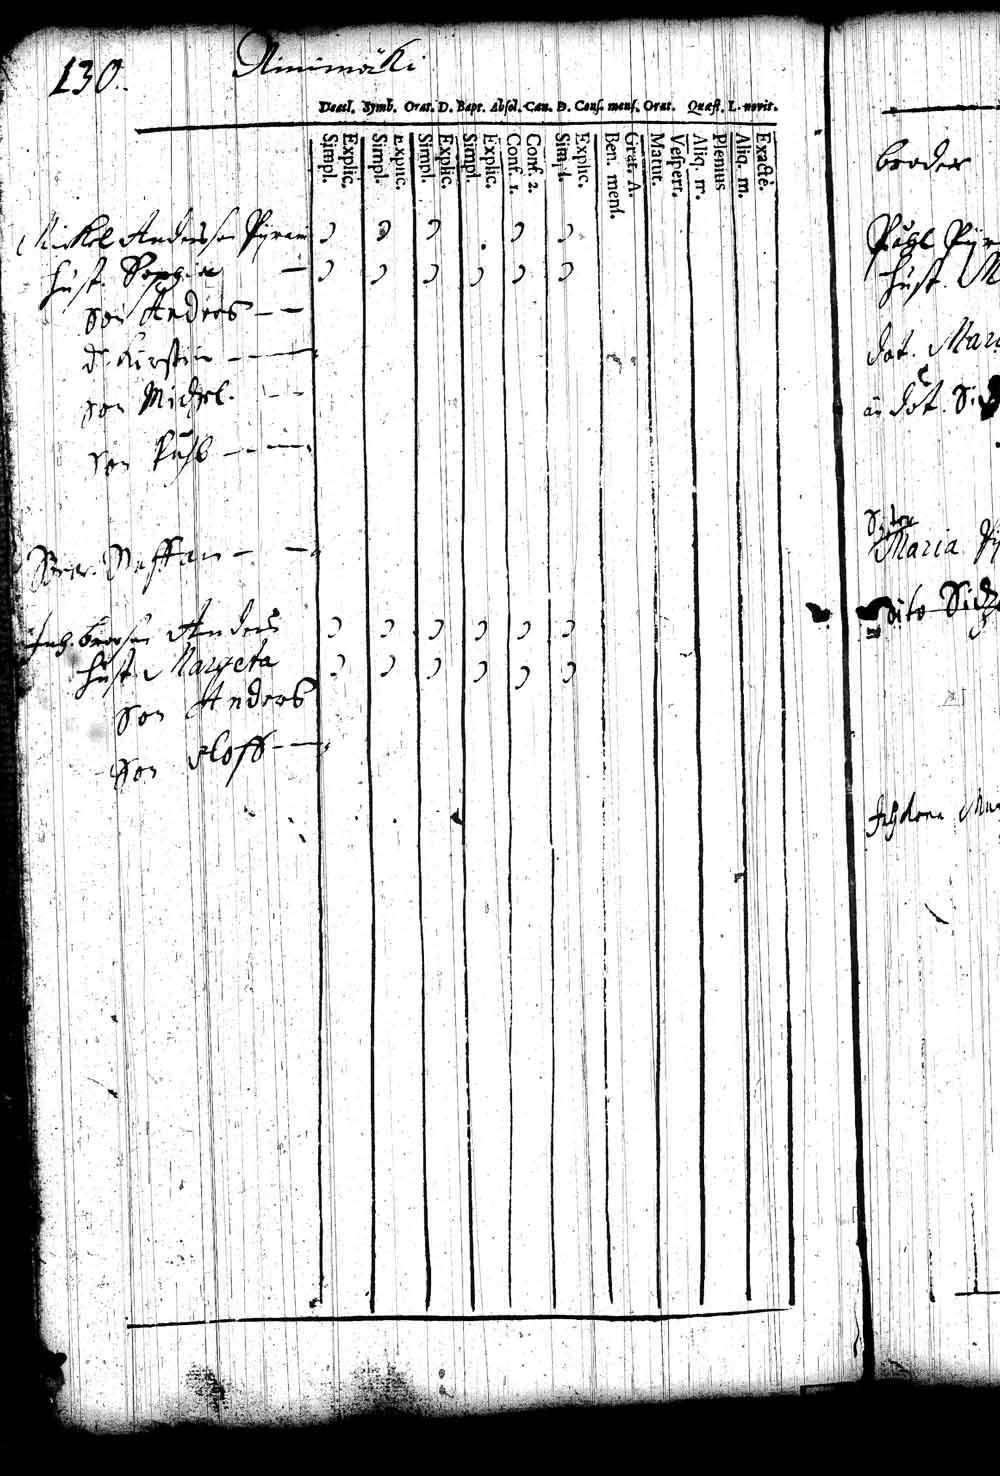 130.
Niinimäki
Decal. Symb. Orat. D. Bapt. Absol. Cœn. D. Conf. mens. Orat. Quæst. L. novit.
Simpl. Explic. Simpl. Explic. Simpl. Explic. Simpl. Explic. Conf. 1. Conf. 2. Simpl. Explic. Ben. mens. Grat. A. Matut. Vespert. Aliq. rr. Plenius Aliq. m. Exactè.
Michel Andersson Pyräin
hust. Sophia
Son Anders
d. Kirstin
Son Michel.
Son Påhl
Bror. Staffan
Inh. brorson Anders
hust. Margeta
Son Anders
Son Oloff
broder
Påhl
hust. M
dot. Mari
dot.
Syster
Maria
dito
Mar